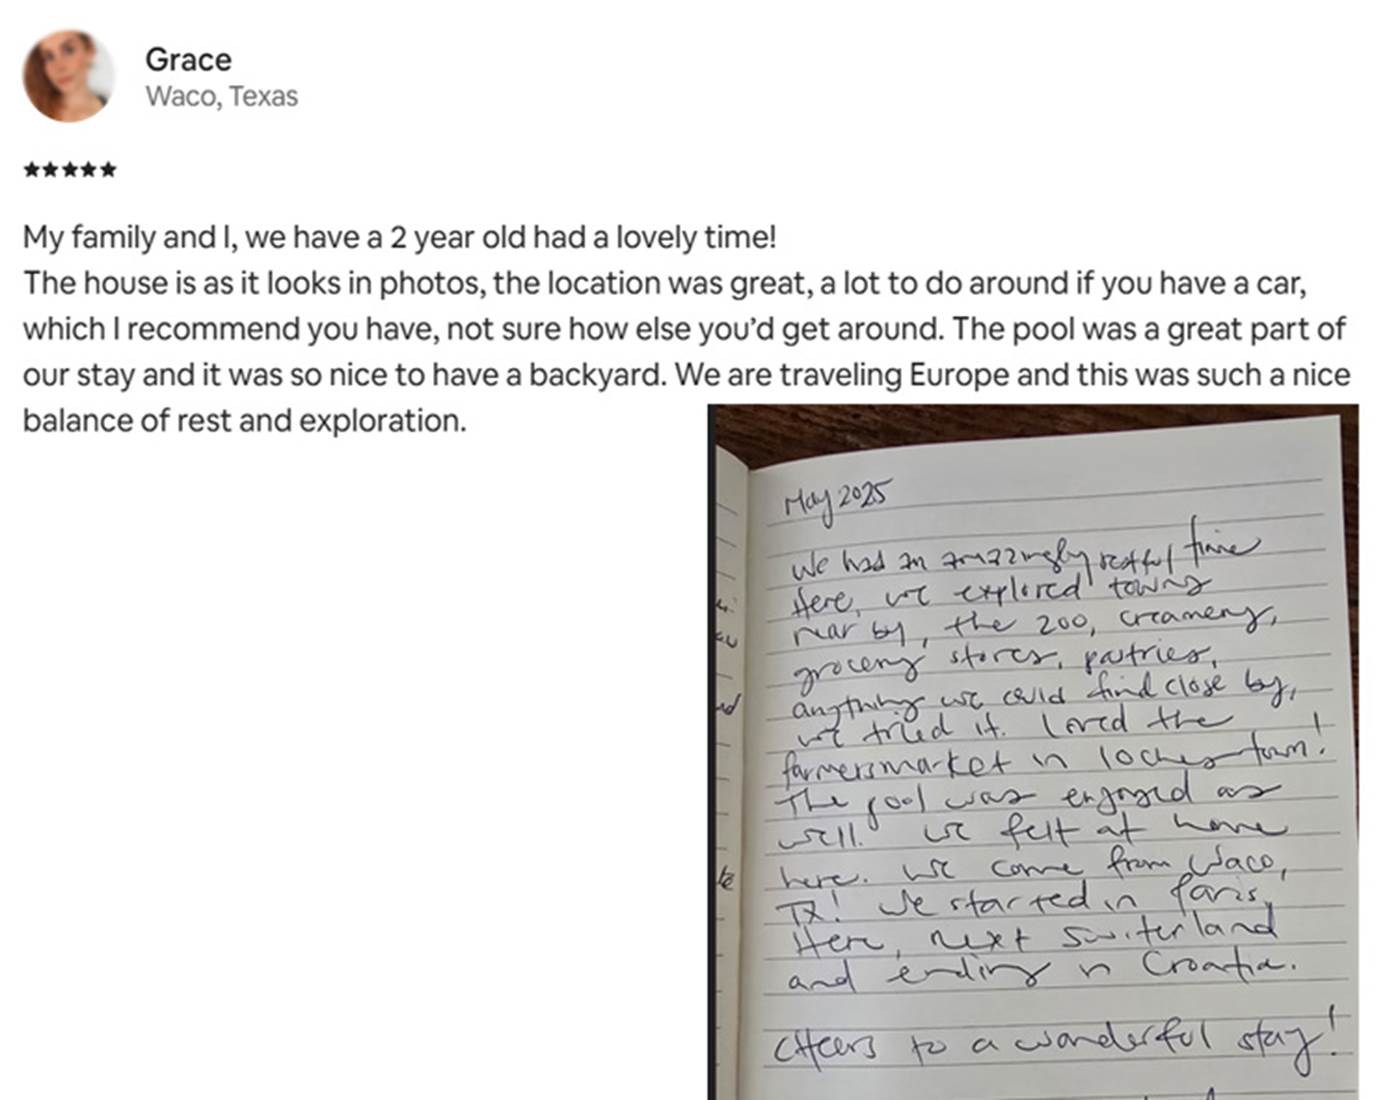 Grace
Waco, Texas
★★★★★
My family and I, we have a 2 year old had a lovely time!
The house is as it looks in photos, the location was great, a lot to do around if you have a car,
which I recommend you have, not sure how else you'd get around. The pool was a great part of
our stay and it was so nice to have a backyard. We are traveling Europe and this was such a nice
balance of rest and exploration.
May 2025
We had an amazingly restful time
Here, we explored towns
near by, the zoo, creamery,
grocery stores, pastries,
anything we could find close by,
we tried it. Loved the
farmersmarket in loches town!
The pool was enjoyed as
well. We felt at home
here. We come from Waco,
TX! We started in Paris,
Here, next Switerland
and ending in Croatia.
CHeers to a wonderful stay!